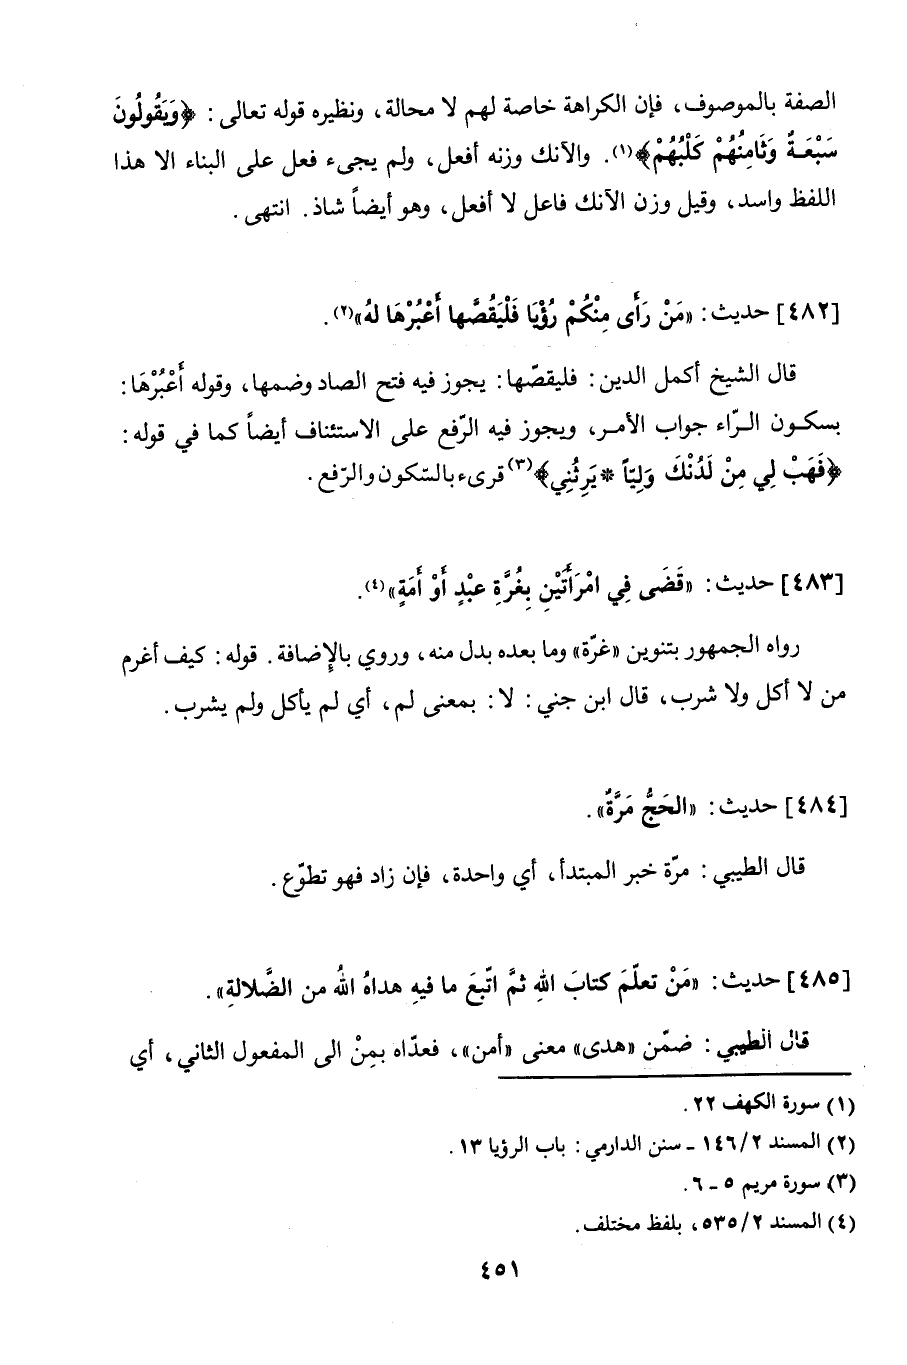 الصفة بالموصوف، فإن الكراهة خاصة لهم لا محالة، ونظيره قوله تعالى: ﴿وَيَقُولُونَ
سَبْعَةٌ وَثَامِنُهُمْ كَلْبُهُمْ﴾(١). والآنك وزنه أفعل، ولم يجىء فعل على البناء الا هذا
اللفظ واسد، وقيل وزن الآنك فاعل لا أفعل، وهو أيضاً شاذ. انتهى.
[٤٨٢] حديث: «مَنْ رَأَى مِنْكُمْ رُؤْيَا فَلْيَقُصَّها أَعْبُرْهَا لهُ»(٢).
قال الشيخ أكمل الدين: فليقصّها: يجوز فيه فتح الصاد وضمها، وقوله أَعْبُرْهَا:
بسكون الرّاء جواب الأمر، ويجوز فيه الرّفع على الاستئناف أيضاً كما في قوله:
﴿فَهَبْ لِي مِنْ لَدُنْكَ وَلِيّاً * يَرِثُنِي﴾(٣) قرىء بالسّكون والرّفع.
[٤٨٣] حديث: «قَضَى فِي امْرَأَتَيْنِ بِغُرَّةِ عبْدٍ أَوْ أَمَةٍ»(٤).
رواه الجمهور بتنوين «غرّة» وما بعده بدل منه، وروي بالإضافة. قوله: كيف أغرم
من لا أكل ولا شرب، قال ابن جني: لا: بمعنى لم، أي لم يأكل ولم يشرب.
[٤٨٤] حديث: «الحَجُّ مَرَّةٌ».
قال الطيبي: مرّة خبر المبتدأ، أي واحدة، فإن زاد فهو تطوّع.
[٤٨٥] حديث: «مَنْ تعلّمَ كتابَ اللهِ ثمَّ اتّبعَ ما فيهِ هداهُ اللهُ من الضَّلالةِ».
قال الطيبي: ضمّن «هدى» معنى «أمن»، فعدّاه بمِنْ الى المفعول الثاني، أي
(١) سورة الكهف ٢٢.
(٢) المسند ١٤٦/٢ ـ سنن الدارمي: باب الرؤيا ١٣.
(٣) سورة مريم ٥ ـ ٦.
(٤) المسند ٥٣٥/٢، بلفظ مختلف.
٤٥١